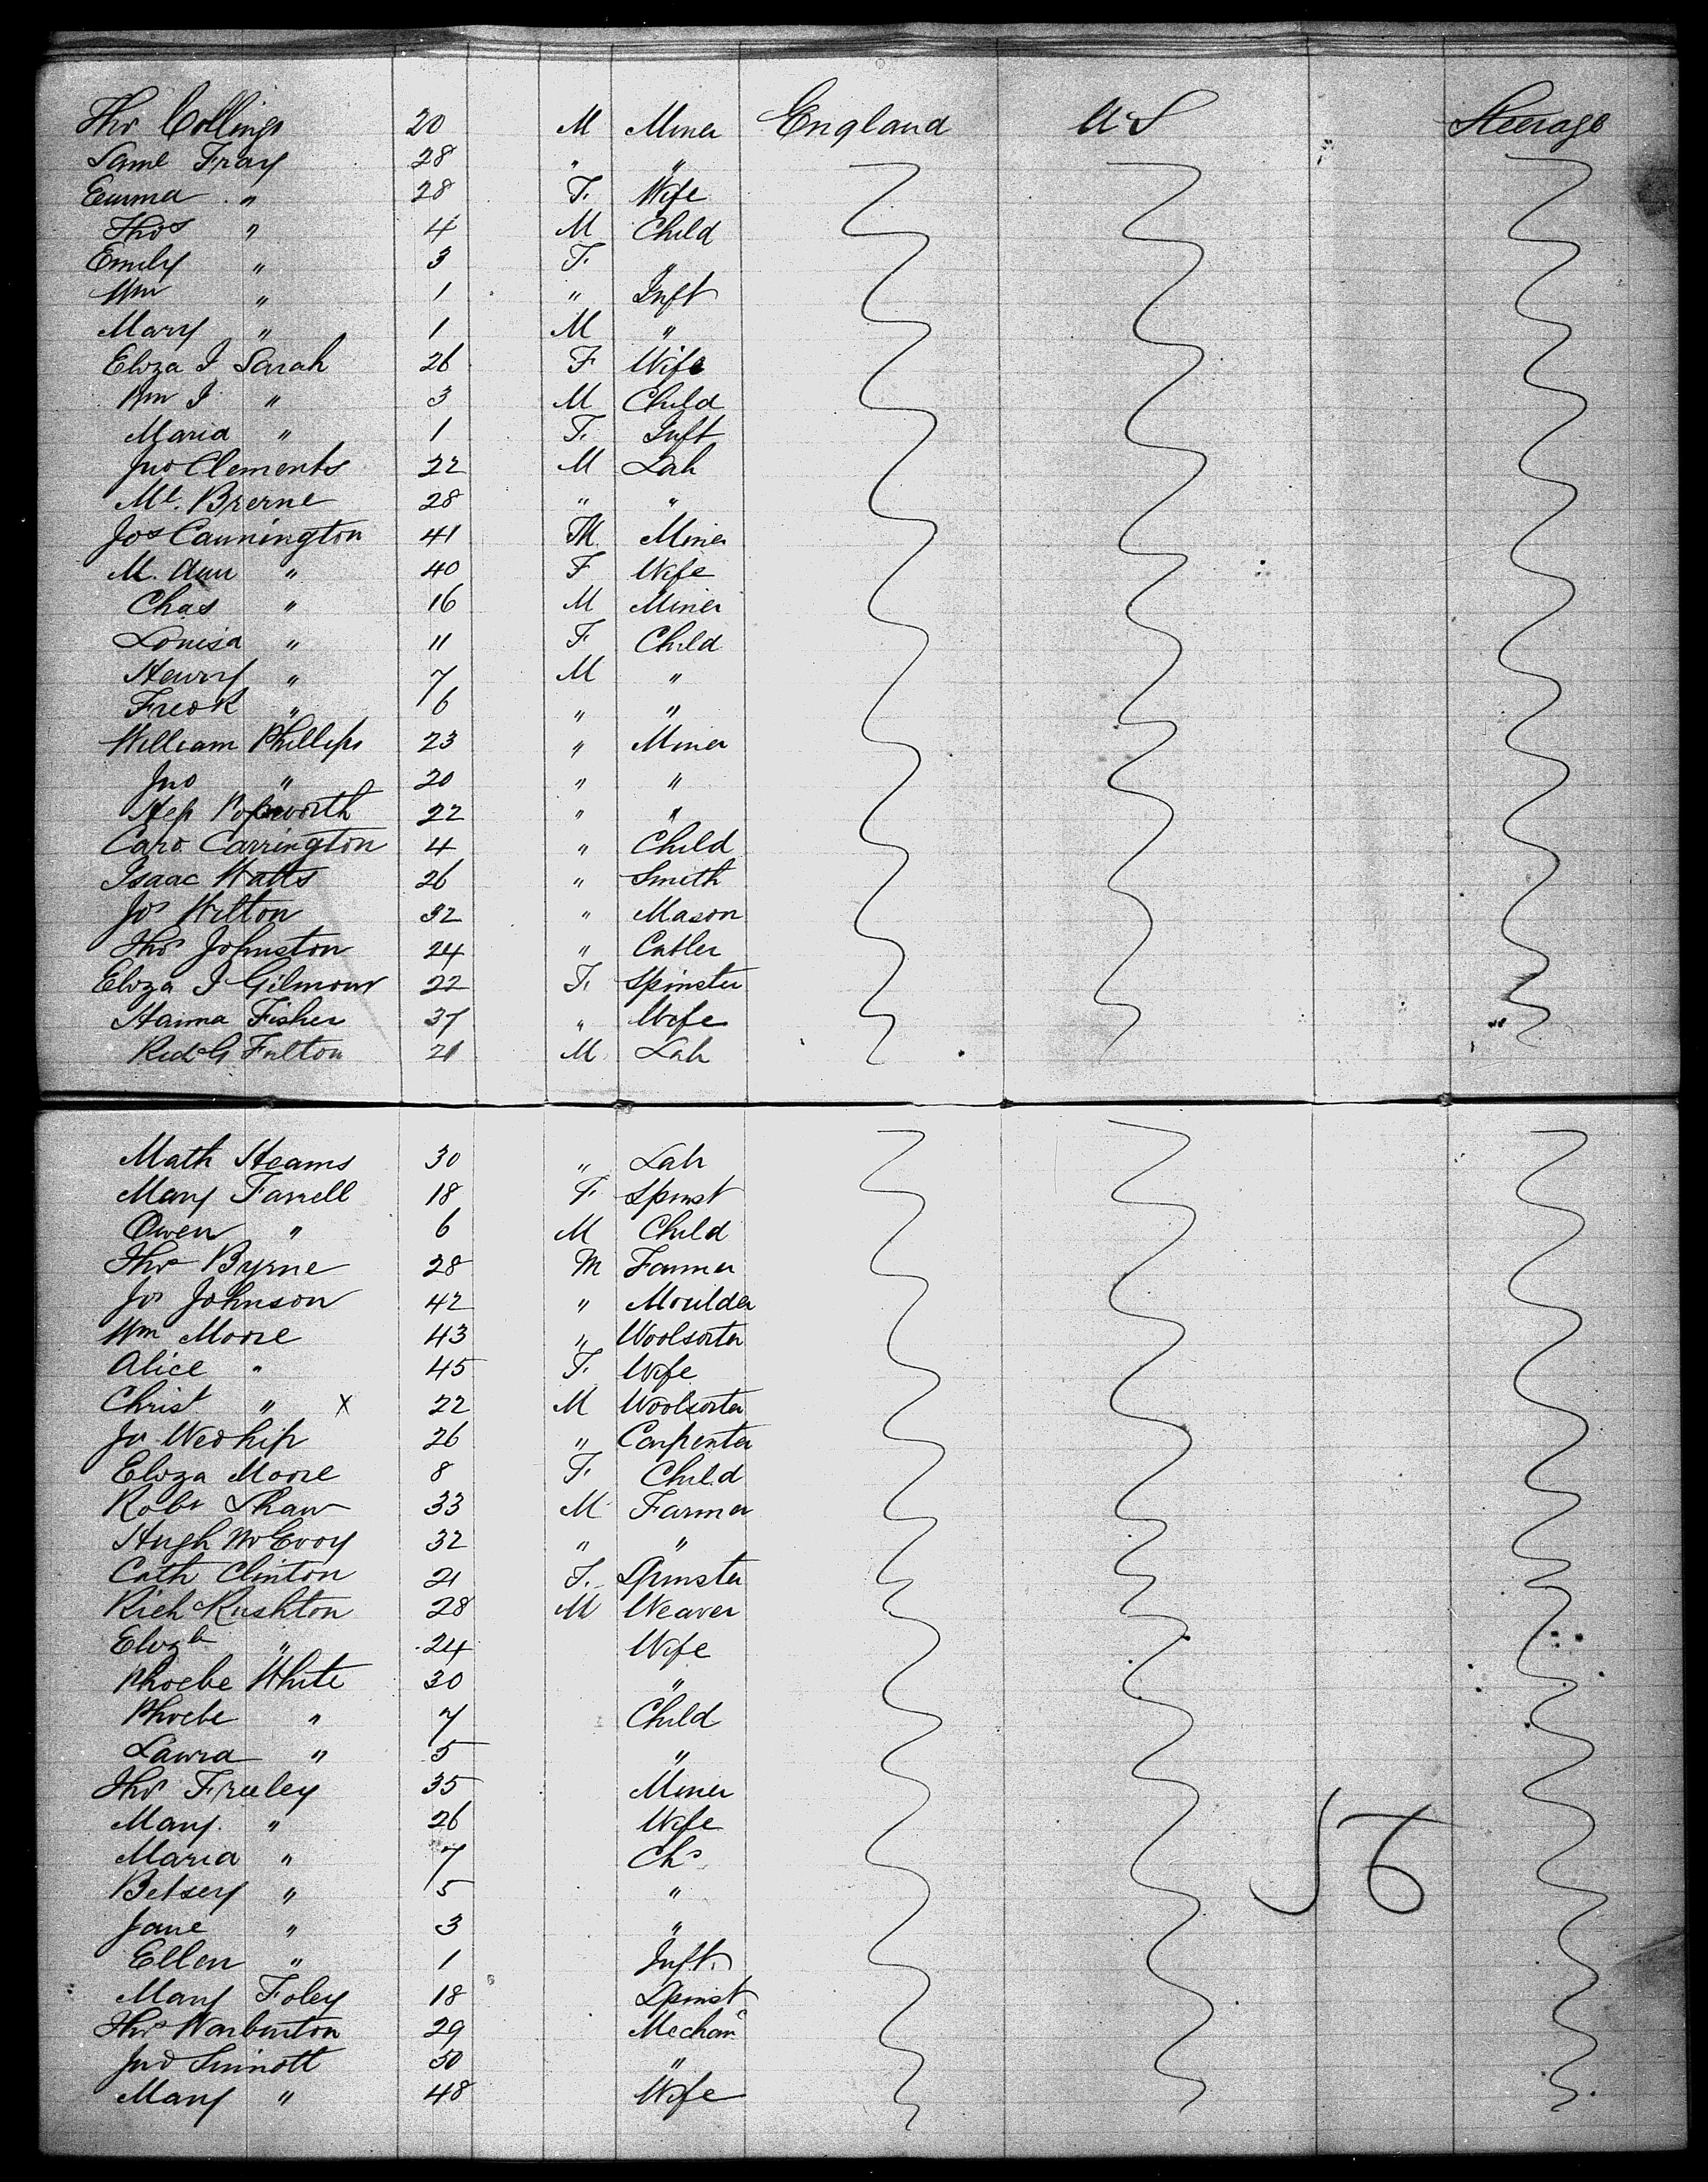 Thos Collings 20 M Miner England U S Steerage
Saml Fray 28 " "
Emma " 28 F. Wife
Thos " 4 M Child
Emily " 3 F. "
Wm " 1 " Inft
Mary " 1 M "
Eliza J Sarah 26 F Wife
Wm J " 3 M Child
Maria " 1 F. Inft
Jno Clements 22 M Lab
Ml. Brerne 28 " "
Jos Cannington 41 M. Miner
M. Ann " 40 F Wife
Chas " 16 M Miner
Louisa " 11 F Child
Henry " 7 M "
Fredk " 6 " "
William Phillips 23 " Miner
Jno " 20 " "
Step 22 " "
Caro Carrington 4 " Child
Isaac Watts 26 " Smith
Jos Wilton 32 " Mason
Thos Johnston 24 " Cutler
Eliza J Gilmour 22 F. Spinster
Hanna Fisher 37 " Wife
Richd G Fulton 21 M Lab
Math Heams 30 " Lab
Mary Farrell 18 F. Spinst
Owen " 6 M Child
Thos Byrne 28 M Farmer
Jos Johnson 42 " Moulder
Wm Moore 43 " Woolsorter
Alice " 45 F. Wife
Christ " X 22 M Woolsorter
Jos 26 " Carpenter
Eliza Moore 8 F. Child
Robt Shaw 33 M Farmer
Hugh McEvoy 32 " "
Cath Clinton 21 F. Spinster
Rich Rushton 28 M Weaver
Elizth " 24 Wife
Phoebe White 30 "
Phoebe " 7 Child
Laura " 5 "
Thos Freeley 35 Miner
Mary " 26 Wife
Maria " 7 Chd
Betsey " 5 "
Jane " 3 "
Ellen " 1 Inft.
Mary Foley 18 Spinst
Thos Warburton 29 Mechanc
Jno Sinnott 50 "
Mary " 48 Wife